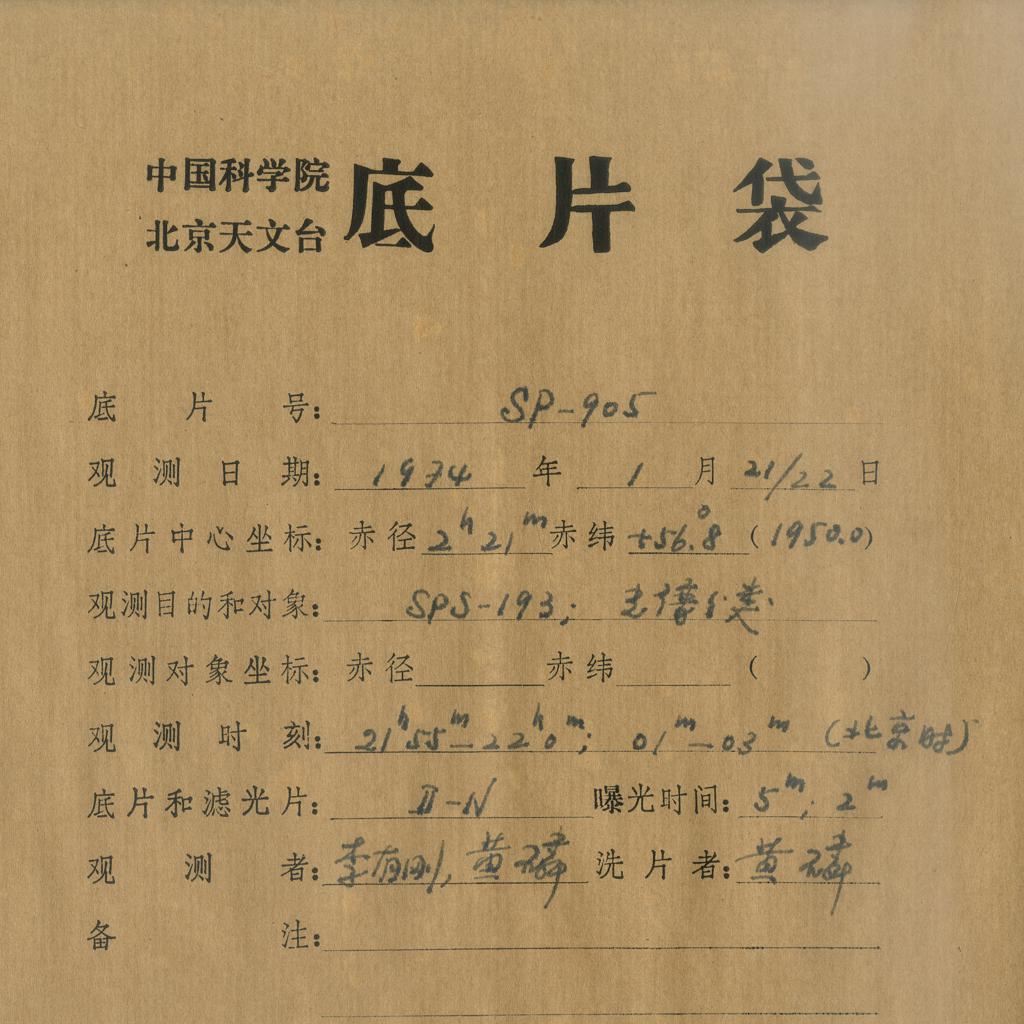 中国科学院
北京天文台
底片袋
底片号: SP-905
观测日期: 1974年1月21/22日
底片中心坐标: 赤径 2h 21m 赤纬 +56°.8 (1950.0)
观测目的和对象: SPS-193; 光谱分类
观测对象坐标: 赤径 赤纬 ( )
观测时刻: 21h55m—22h0m; 01m—03m (北京时)
底片和滤光片: II-N 曝光时间: 5m; 2m
观测者: 李有刚, 黄磷 洗片者: 黄磷
备注: